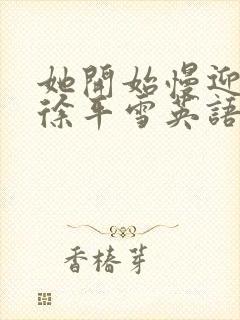 她開始慢迎
徐平雪英語
香椿芽